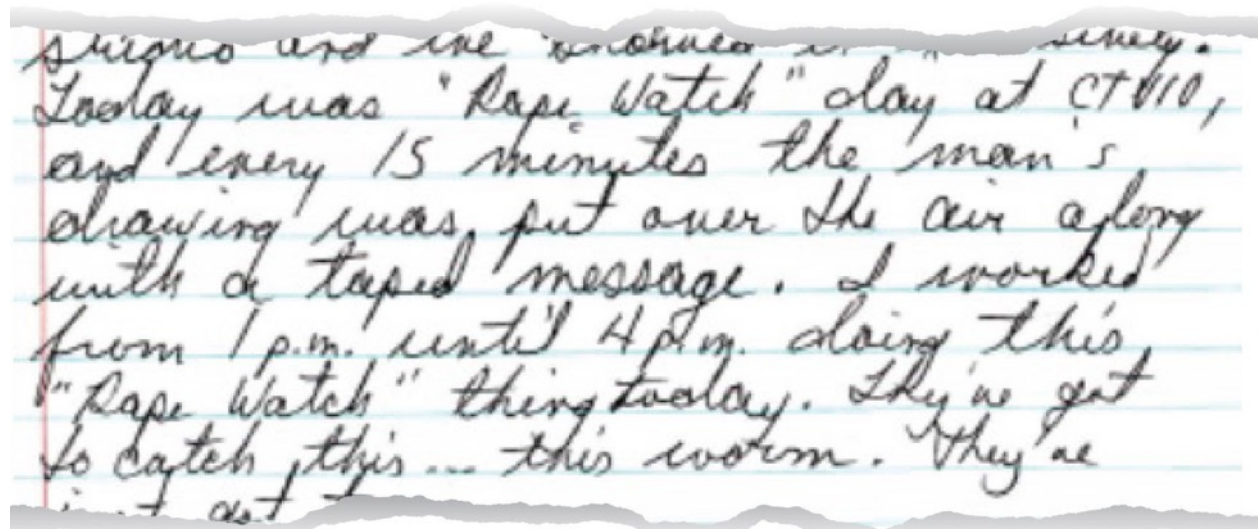 and we
Today was "Rape Watch" day at CTV10,
and every 15 minutes the man's
drawing was put over the air along
with a taped message. I worked
from 1 p.m. until 4 p.m. doing this
"Rape Watch" thing today. They've got
to catch this... this worm. They've
just got t